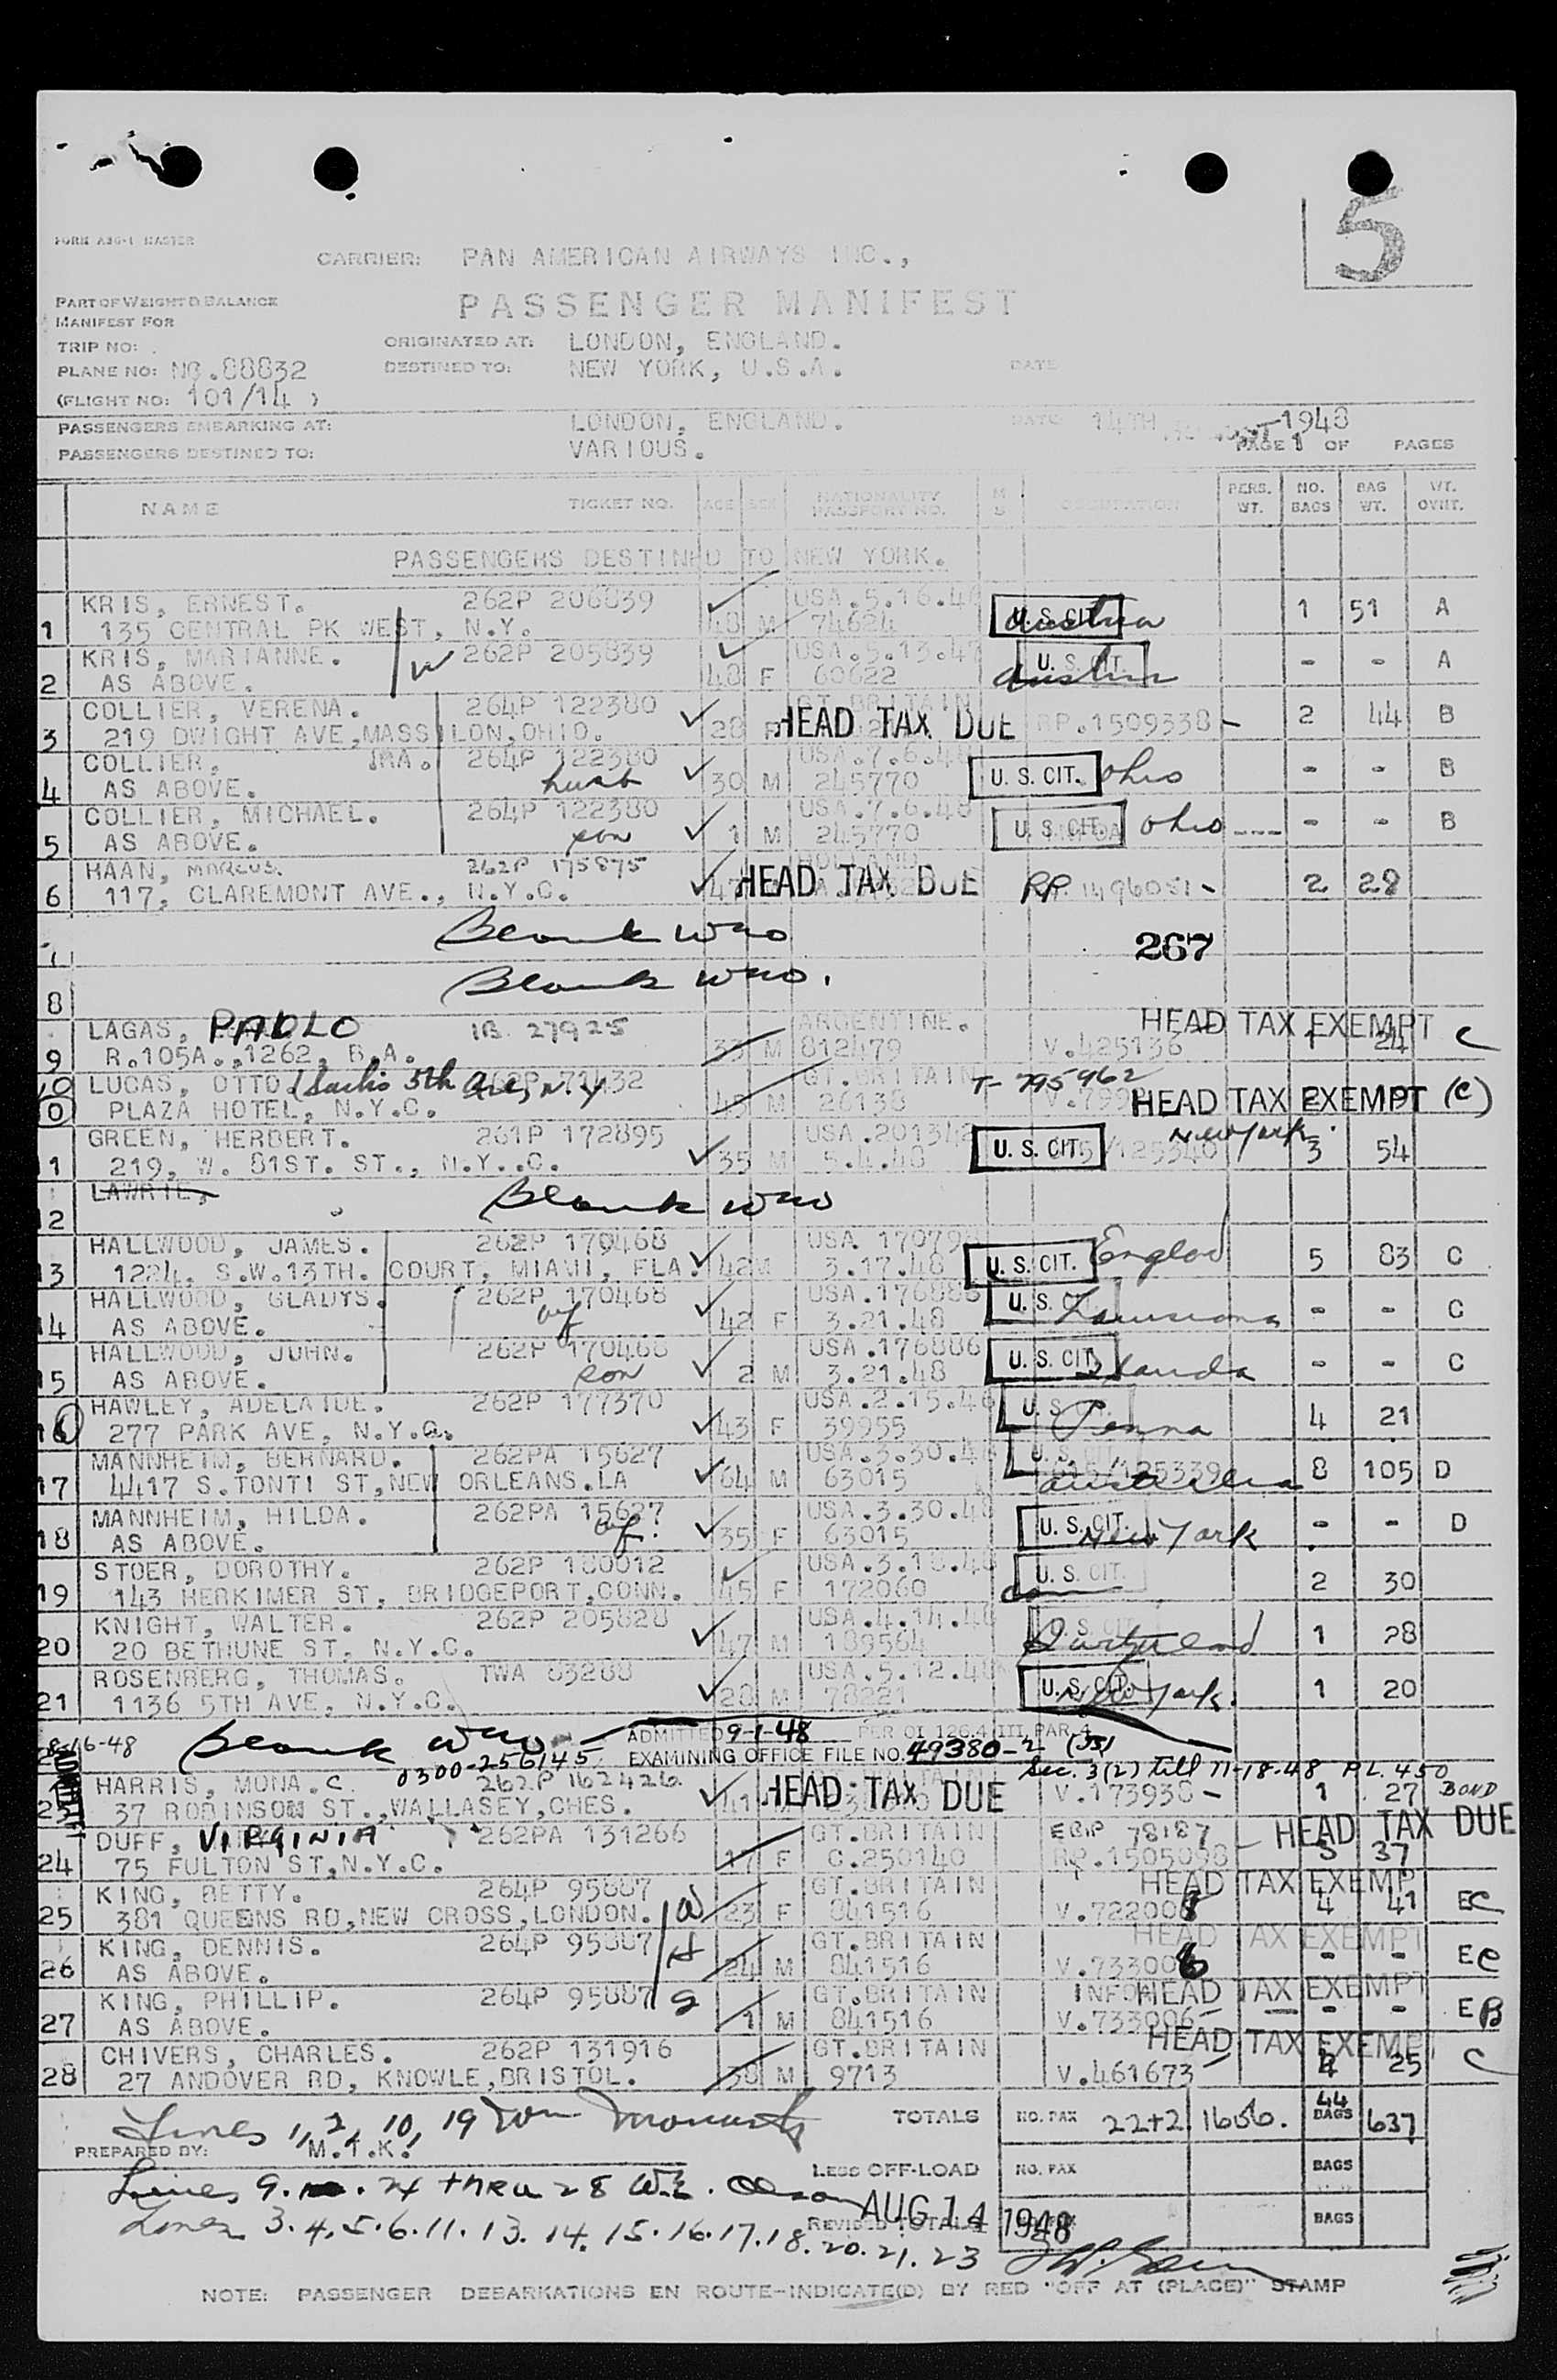 5
FORM A86-1 MASTER
CARRIER: PAN AMERICAN AIRWAYS INC.,
PART OF WEIGHT & BALANCE
MANIFEST FOR
PASSENGER MANIFEST
TRIP NO: ORIGINATED AT: LONDON, ENGLAND.
PLANE NO: NC.88832 DESTINED TO: NEW YORK, U.S.A. DATE
(FLIGHT NO: 101/14 )
PASSENGERS EMBARKING AT: LONDON, ENGLAND. DATE 14TH 1948
PASSENGERS DESTINED TO: VARIOUS. PAGE 1 OF PAGES
NAME TICKET NO. AGE SEX NATIONALITY PASSPORT NO. M S OCCUPATION PERS. WT. NO. BAGS BAG WT. WT. OVHT.
PASSENGERS DESTINED TO NEW YORK.
KRIS, ERNEST. 262P 206839 USA.5.16.4
1 135 CENTRAL PK WEST, N.Y. 48 M 74624 U.S.CIT. Austria 1 51 A
KRIS, MARIANNE. W 262P 205839 USA.5.13.47
2 AS ABOVE. 48 F 60622 U.S.CIT. Austria - - A
COLLIER, VERENA. 264P 122380 GT.BRITAIN
3 219 DWIGHT AVE,MASSILON,OHIO. 28 F HEAD TAX DUE RP.1509338 - 2 44 B
COLLIER, IRA. 264P 122380 USA.7.6.48
4 AS ABOVE. husb 30 M 245770 U.S. CIT. Ohio - - B
COLLIER, MICHAEL. 264P 122380 USA.7.6.48
5 AS ABOVE. son 1 M 245770 U.S. CIT. Ohio ---- - - B
HAAN, MARCUS. 262P 175875 HOLLAND
6 117, CLAREMONT AVE., N.Y.C. 47 HEAD TAX DUE RP. 1496081 - 2 28
Blank WNO 267
8 Blank WNO.
LAGAS, PABLO 1B 27925 ARGENTINE. HEAD TAX EXEMPT
9 R.105A.,1262, B.A. 33 M 812479 V.425136 1 24 C
LUCAS, OTTO 5th Ave, N.Y. 262P 71432 GT.BRITAIN T-795962
10 PLAZA HOTEL, N.Y.C. 45 M 26138 HEAD TAX EXEMPT (C)
GREEN, HERBERT. 261P 172895 USA.201342 New York.
11 219, W. 81ST. ST., N.Y..C. 35 M 5.4.48 U.S. CIT. 3 54
LAWRIE,
12 Blank WNO
HALLWOOD, JAMES. 262P 170468 USA 170798
13 1224, S.W.13TH. COURT, MIAMI, FLA. 42 M 3.17.48 U.S.CIT. England 5 83 C
HALLWOOD, GLADYS. 262P 170468 USA.176886
14 AS ABOVE. wf 42 F 3.21.48 U.S. CIT. Louisiana - - C
HALLWOOD, JOHN. 262P 170468 USA.176886
15 AS ABOVE. son 2 M 3.21.48 U.S. CIT. - - C
HAWLEY, ADELAIDE. 262P 177370 USA.2.15.48
16 277 PARK AVE, N.Y.C. 43 F 39955 U.S.CIT. Penna 4 21
MANNHEIM, BERNARD. 262PA 15627 USA.3.30.48
17 4417 S.TONTI ST,NEW ORLEANS.LA 64 M 63015 U.S.CIT. 125339 8 105 D
MANNHEIM, HILDA. 262PA 15627 USA.3.30.48
18 AS ABOVE. wf. 35 F 63015 U.S.CIT. New York - - D
STOER, DOROTHY. 262P 180012 USA.3.18.48
19 143 HERKIMER ST, BRIDGEPORT,CONN. 45 F 172060 U.S. CIT. 2 30
KNIGHT, WALTER. 262P 205828 USA.4.14.48
20 20 BETHUNE ST, N.Y.C. 47 M 189564 U.S.CIT. Switzerland 1 28
ROSENBERG, THOMAS. TWA 83288 USA.5.12.48
21 1136 5TH AVE, N.Y.C. 28 M 78221 U.S.CIT. New York. 1 20
8-16-48 Blank WNO ADMITTED 9-1-48 PER OI 126.4 III PAR 4
0300-256145 EXAMINING OFFICE FILE NO. 49380-2 (JS)
Sec. 3(2) till 11-18-48 P.L. 450
HARRIS, MONA.C. 262P 162426
ADMITTED 37 ROBINSON ST.,WALLASEY,CHES. 41 HEAD TAX DUE V.173938 - 1 27 BOND
DUFF, VIRGINIA 262PA 131266 GT.BRITAIN 78187 - HEAD TAX DUE
24 75 FULTON ST,N.Y.C. 17 F C.250140 RP.1505098 3 37
KING, BETTY. 264P 95887 GT.BRITAIN HEAD TAX EXEMPT
25 381 QUEENS RD,NEW CROSS,LONDON. W 23 F 841516 V.722008 4 41 EC
KING, DENNIS. 264P 95887 H GT.BRITAIN HEAD TAX EXEMPT
26 AS ABOVE. 24 M 841516 V.733006 - - EC
KING, PHILLIP. 264P 95887 S GT.BRITAIN INFANT HEAD TAX EXEMPT
27 AS ABOVE. 1 M 841516 V.733006 - - EB
CHIVERS, CHARLES. 262P 131916 GT.BRITAIN HEAD TAX EXEMPT
28 27 ANDOVER RD, KNOWLE,BRISTOL. 38 M 9713 V.461673 25 C
Lines 1, 2, 10, 19 TOTALS NO. PAX 22+2 1656. 44 BAGS 637
PREPARED BY: M.T.K.
LESS OFF-LOAD NO. PAX BAGS
Lines 9. 24 thru 28 W.E. Olson AUG 14 1948
REVISED TOTALS BAGS
Lines 3.4.5.6.11.13.14.15.16.17.18.20.21.23
NOTE: PASSENGER DEBARKATIONS EN ROUTE-INDICATE(D) BY RED "OFF AT (PLACE)" STAMP